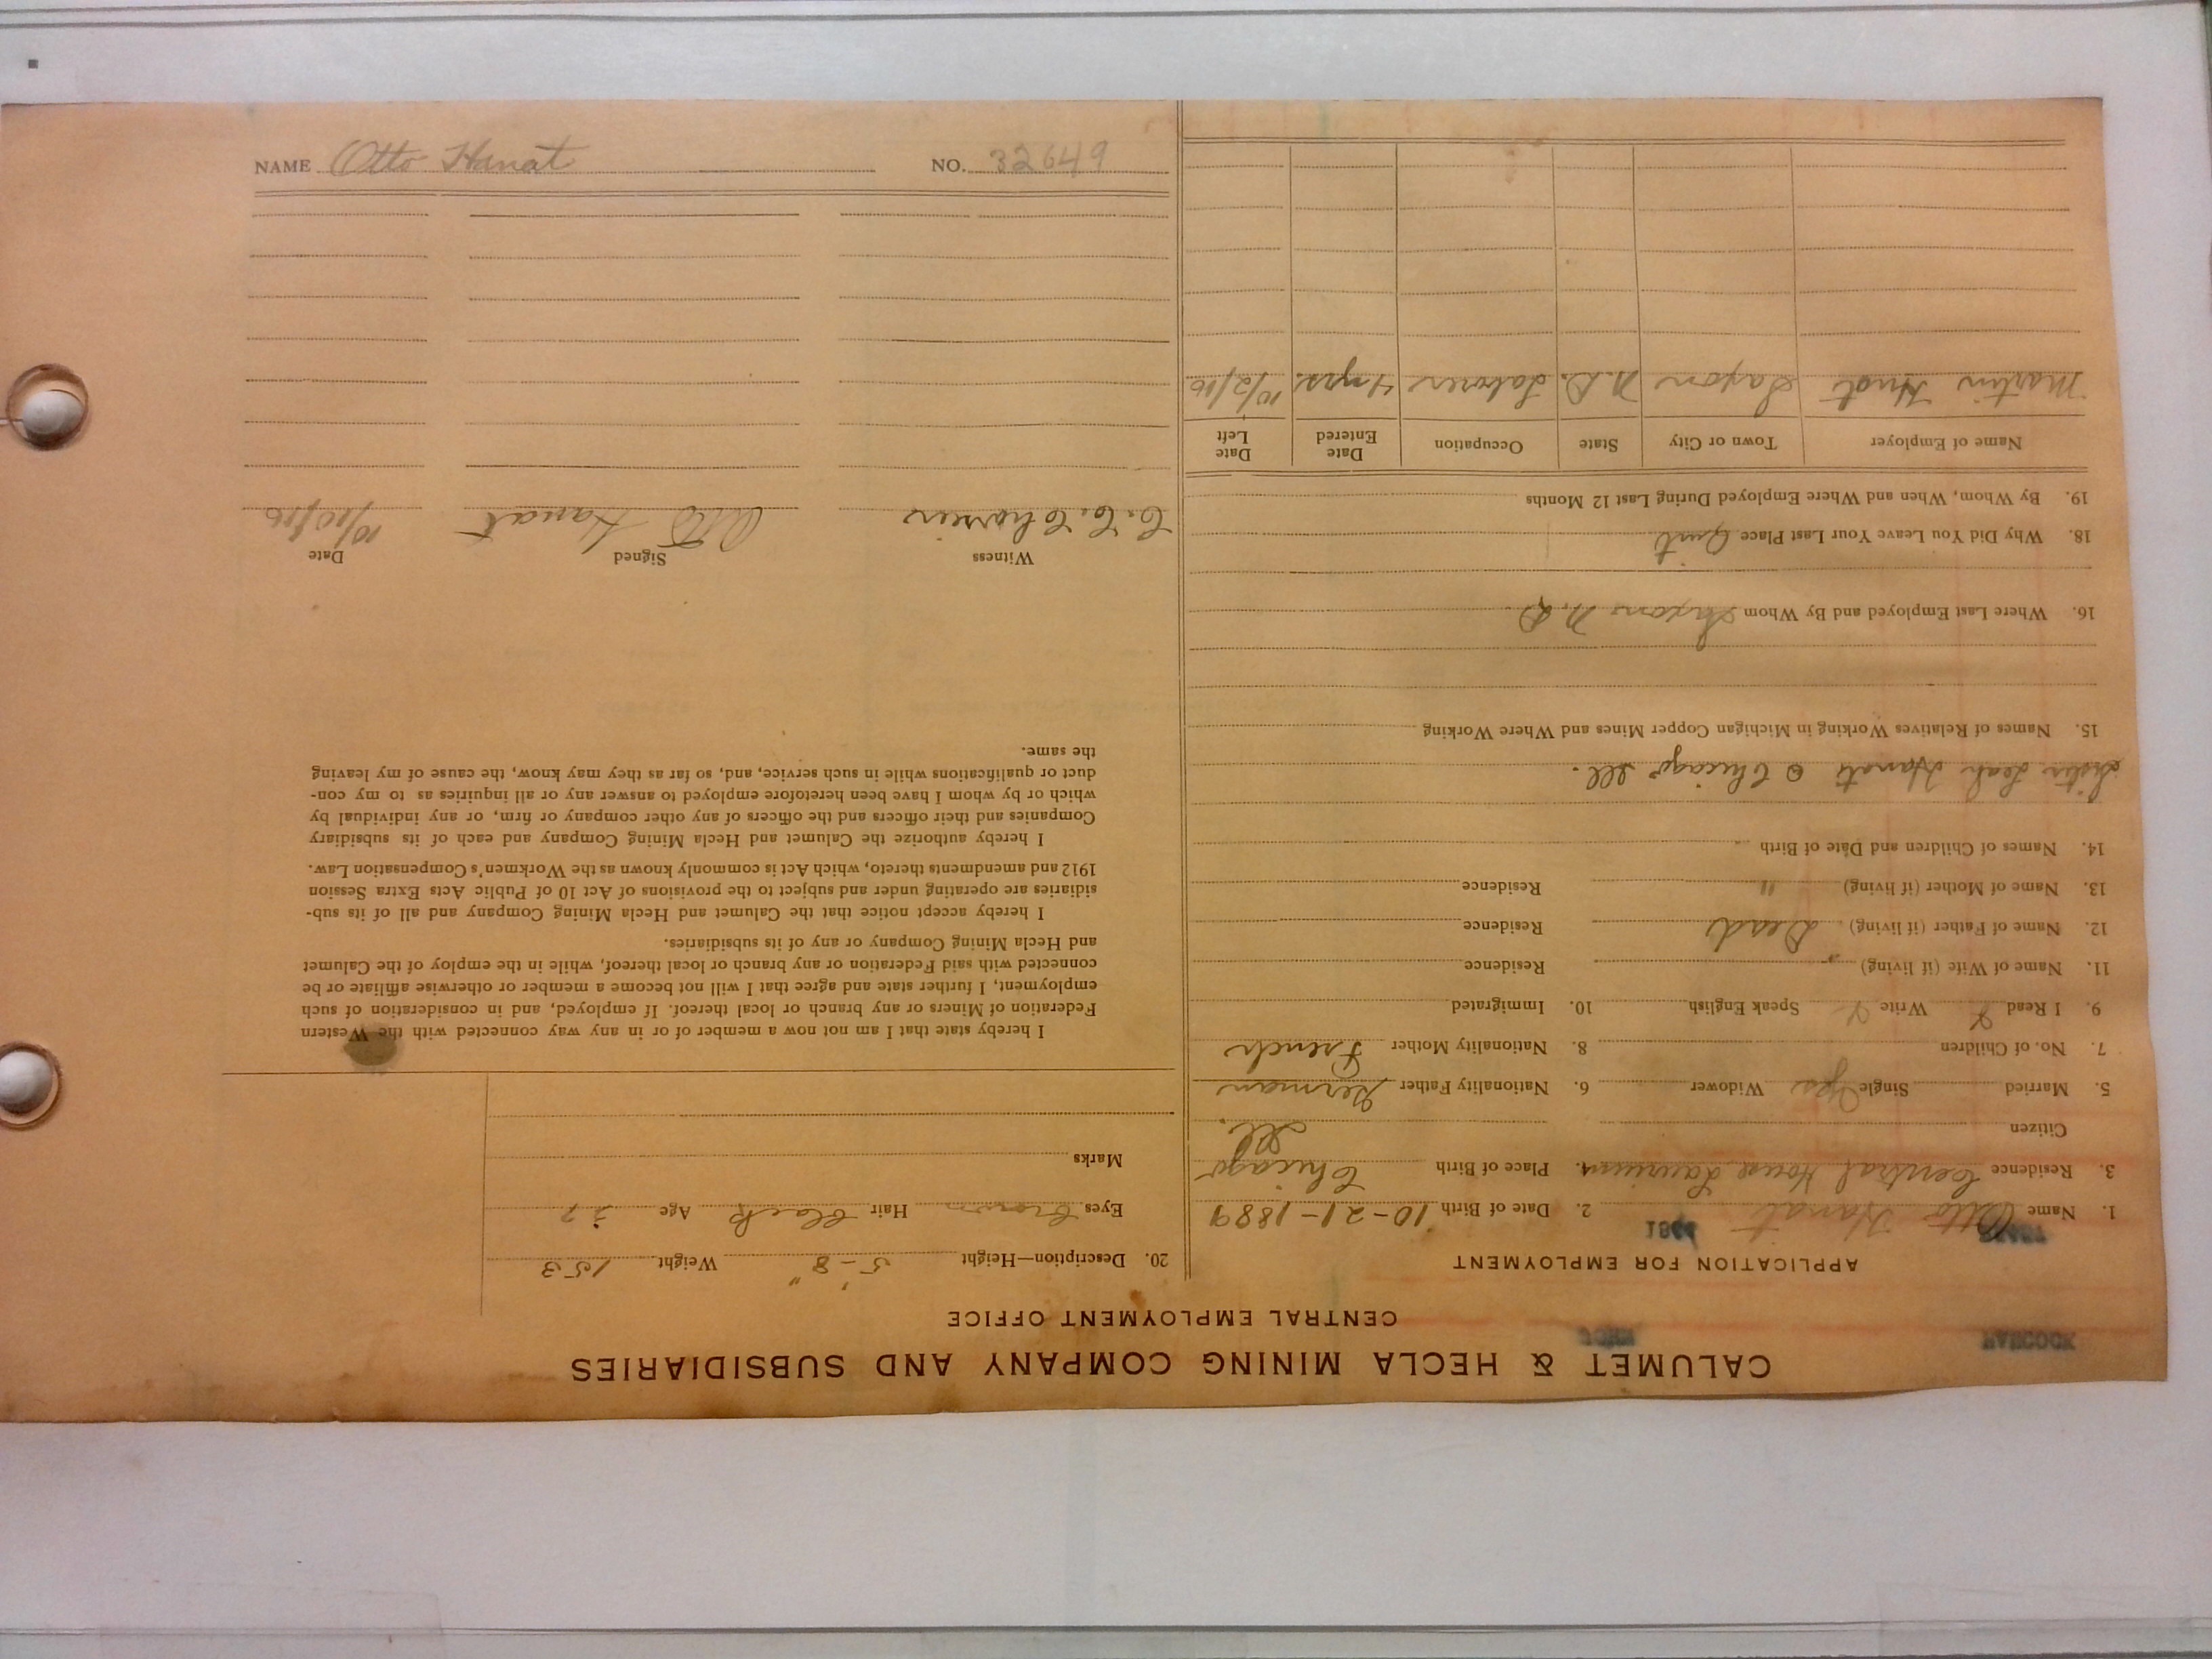 NAME Otto Hanat NO. 32649
CALUMET & HECLA MINING COMPANY AND SUBSIDIARIES
CENTRAL EMPLOYMENT OFFICE
APPLICATION FOR EMPLOYMENT
1. Name Otto Hanat 2. Date of Birth 10-21-1889
3. Residence Central House Laurium 4. Place of Birth Chicago
Ill.
Citizen
5. Married Single Yes Widower 6. Nationality Father German
7. No. of Children 8. Nationality Mother French
9. I Read Y Write Y Speak English 10. Immigrated
11. Name of Wife (if living) Residence
12. Name of Father (if living) Dead Residence
13. Name of Mother (if living) " Residence
14. Names of Children and Date of Birth
Sister Leah Hanat Chicago Ill.
15. Names of Relatives Working in Michigan Copper Mines and Where Working
16. Where Last Employed and By Whom Saxon N. D.
18. Why Did You Leave Your Last Place Quit
19. By Whom, When and Where Employed During Last 12 Months
Name of Employer Town or City State Occupation Date Entered Date Left
Martin Saxon N. D. Laborer 4 yrs. 10/2/16
20. Description—Height 5'-8" Weight 153
Eyes brown Hair black Age 27
Marks
I hereby state that I am not now a member of or in any way connected with the Western
Federation of Miners or any branch or local thereof. If employed, and in consideration of such
employment, I further state and agree that I will not become a member or otherwise affiliate or be
connected with said Federation or any branch or local thereof, while in the employ of the Calumet
and Hecla Mining Company or any of its subsidiaries.
I hereby accept notice that the Calumet and Hecla Mining Company and all of its sub-
sidiaries are operating under and subject to the provisions of Act 10 of Public Acts Extra Session
1912 and amendments thereto, which Act is commonly known as the Workmen's Compensation Law.
I hereby authorize the Calumet and Hecla Mining Company and each of its subsidiary
Companies and their officers and the officers of any other company or firm, or any individual by
which or by whom I have been heretofore employed to answer any or all inquiries as to my con-
duct or qualifications while in such service, and, so far as they may know, the cause of my leaving
the same.
Witness Signed Date
C. C. Otto Hanat 10/10/16
HANCOCK JOHN